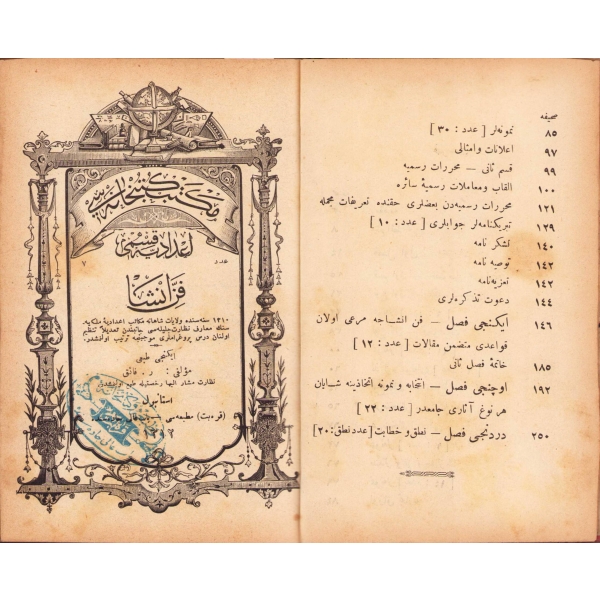 مكتب كتبخانه سى
اعداديه قسمى
عدد ٧
فن انشا
١٣١٠ سنه سنده ولايات شاهانه مكاتب اعداديهٔ ملكيه
سنك معارف نظارت جليله سى جانبندن تعديلاً تنظيم
اولنان درس پروغراملرى موجبنجه ترتيب اولنشدر
ايكنجى طبعى
مؤلفى : ر . فائق
نظارت مشار اليها رخصتيله طبع اولنشدر
استانبول
(قره بت) مطبعه سى
صحيفه
٨٥ نمونه لر [ عدد : ٣٠ ]
٩٧ اعلانات وامثالى
٩٩ قسم ثانى — محررات رسميه
١٠٠ القاب ومعاملات رسميهٔ سائره
١٢١ محررات رسميه دن بعضلرى حقنده تعريفات مجمله
١٢٩ تبريكنامه لر جوابلرى [ عدد : ١٠ ]
١٤٠ تشكر نامه
١٤٢ توصيه نامه
١٤٣ تعزيه نامه
١٤٤ دعوت تذكره لرى
١٤٦ ايكنجى فصل — فن انشاجه مرعى اولان
قواعدى متضمن مقالات [ عدد : ١٢ ]
١٨٥ خاتمهٔ فصل ثانى
١٩٢ اوچنجى فصل — انتخابه و نمونه اتخاذينه شايان
هر نوع آثارى جامعدر [ عدد : ٢٢ ]
٢٥٠ دردنجى فصل — نطق و خطابت [عدد نطق : ٢٠]